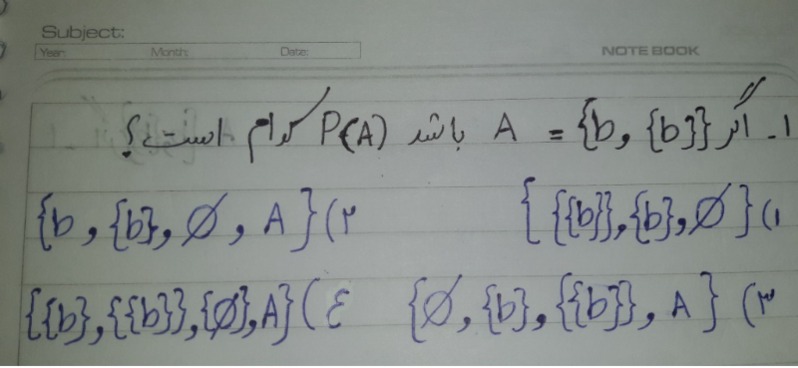 Subject:
Year: Month: Date: NOTE BOOK
۱ـ اگر A = {b, {b}} باشد P(A) کدام است؟
۱) { {{b}}, {b}, ∅ } ۲) {b, {b}, ∅, A}
۳) {∅, {b}, {{b}}, A } ٤) {{b}, {{b}}, {∅}, A}